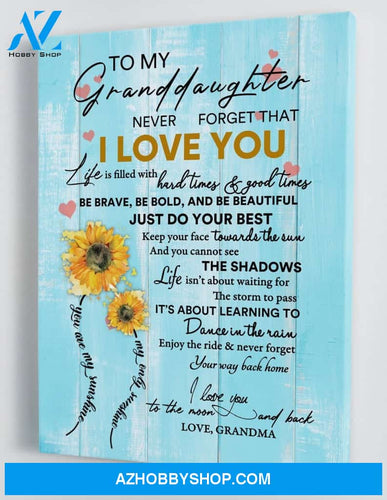 AZ
HOBBY SHOP
TO MY
Granddaughter
NEVER FORGET THAT
I LOVE YOU
Life is filled with hard times & good times
BE BRAVE, BE BOLD, AND BE BEAUTIFUL
JUST DO YOUR BEST
Keep your face towards the sun
And you cannot see
THE SHADOWS
Life isn't about waiting for
The storm to pass
IT'S ABOUT LEARNING TO
Dance in the rain
Enjoy the ride & never forget
Your way back home
you are my sunshine
my only sunshine
I love you
to the moon and back
LOVE, GRANDMA
AZHOBBYSHOP.COM